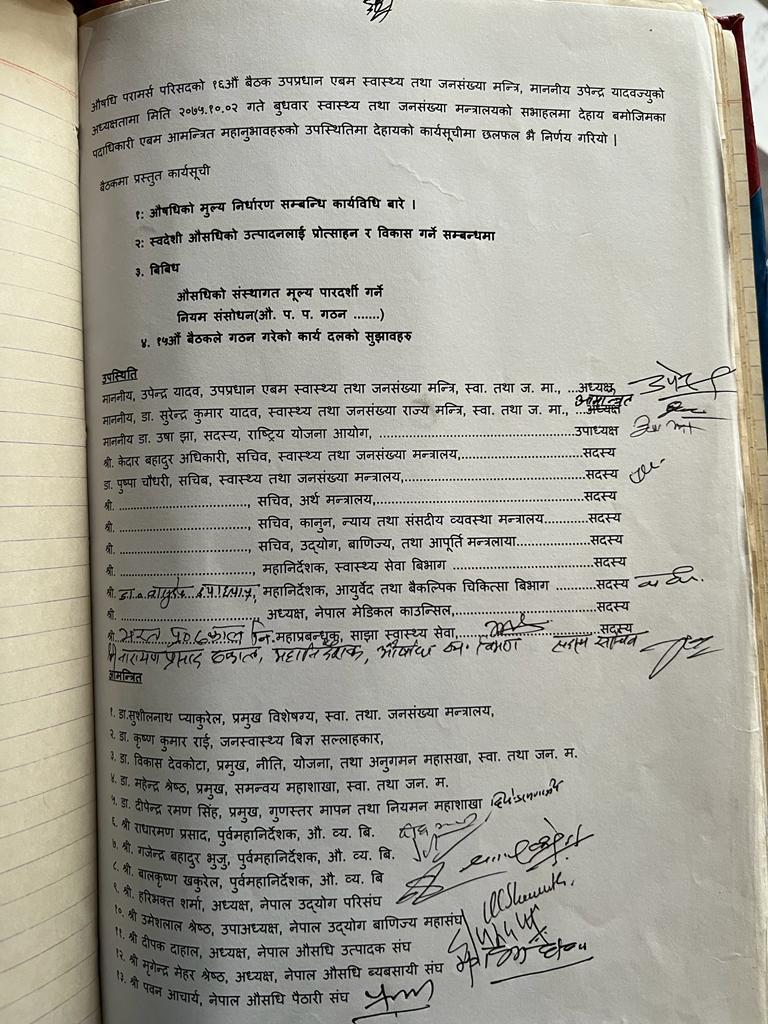 औषधि परामर्स परिसदको १६औं बैठक उपप्रधान एबम स्वास्थ्य तथा जनसंख्या मन्त्रि, माननीय उपेन्द्र यादवज्युको
अध्यक्षतामा मिति २०७५.१०.०२ गते बुधवार स्वास्थ्य तथा जनसंख्या मन्त्रालयको सभाहलमा देहाय बमोजिमका
पदाधिकारी एबम आमन्त्रित महानुभावहरुको उपस्थितिमा देहायको कार्यसूचीमा छलफल भै निर्णय गरियो |
बैठकमा प्रस्तुत कार्यसूची
१: औषधिको मुल्य निर्धारण सम्बन्धि कार्यविधि बारे ।
२: स्वदेशी औसधिको उत्पादनलाई प्रोत्साहन र विकास गर्ने सम्बन्धमा
३. बिबिध
औसधिको संस्थागत मूल्य पारदर्शी गर्ने
नियम संसोधन(औ. प. प. गठन .......)
४. १५औं बैठकले गठन गरेको कार्य दलको सुझावहरु
उपस्थिति
माननीय, उपेन्द्र यादव, उपप्रधान एबम स्वास्थ्य तथा जनसंख्या मन्त्रि, स्वा. तथा ज. मा., ...अध्यक्ष
माननीय, डा. सुरेन्द्र कुमार यादव, स्वास्थ्य तथा जनसंख्या राज्य मन्त्रि, स्वा. तथा ज. मा., ...आमन्त्रित
माननीय डा. उषा झा, सदस्य, राष्ट्रिय योजना आयोग, ..........उपाध्यक्ष
श्री. केदार बहादुर अधिकारी, सचिव, स्वास्थ्य तथा जनसंख्या मन्त्रालय,..........सदस्य
डा. पुष्पा चौधरी, सचिब, स्वास्थ्य तथा जनसंख्या मन्त्रालय,..........सदस्य
श्री. .........., सचिव, अर्थ मन्त्रालय,..........सदस्य
श्री. .........., सचिव, कानुन, न्याय तथा संसदीय व्यवस्था मन्त्रालय..........सदस्य
श्री. .........., सचिव, उद्योग, बाणिज्य, तथा आपूर्ति मन्त्रलाया..........सदस्य
श्री. .........., महानिर्देशक, स्वास्थ्य सेवा बिभाग ..........सदस्य
श्री. डा. वासुदेव उपाध्याय, महानिर्देशक, आयुर्वेद तथा बैकल्पिक चिकित्सा बिभाग ..........सदस्य
श्री. .......... अध्यक्ष, नेपाल मेडिकल काउन्सिल,..........सदस्य
श्री. भरत प्र. ढकाल नि.महाप्रबन्धक, साझा स्वास्थ्य सेवा,..........सदस्य
श्री नारायण प्रसाद ढकाल, महानिर्देशक, औषधि व्य. विभाग सदस्य सचिव
आमन्त्रित
१. डा.सुशीलनाथ प्याकुरेल, प्रमुख विशेषग्य, स्वा. तथा. जनसंख्या मन्त्रालय,
२. डा. कृष्ण कुमार राई, जनस्वास्थ्य बिज्ञ सल्लाहकार,
३. डा. विकास देवकोटा, प्रमुख, नीति, योजना, तथा अनुगमन महासखा, स्वा. तथा जन. म.
४. डा. महेन्द्र श्रेष्ठ, प्रमुख, समन्वय महाशाखा, स्वा. तथा जन. म.
५. डा. दीपेन्द्र रमण सिंह, प्रमुख, गुणस्तर मापन तथा नियमन महाशाखा
६. श्री राधारमण प्रसाद, पुर्वमहानिर्देशक, औ. व्य. बि.
७. श्री. गजेन्द्र बहादुर भुजु, पुर्वमहानिर्देशक, औ. व्य. बि.
८. श्री. बालकृष्ण खकुरेल, पुर्वमहानिर्देशक, औ. व्य. बि
९. श्री. हरिभक्त शर्मा, अध्यक्ष, नेपाल उद्योग परिसंघ
१०. श्री उमेशलाल श्रेष्ठ, उपाअध्यक्ष, नेपाल उद्योग बाणिज्य महासंघ
११. श्री दीपक दाहाल, अध्यक्ष, नेपाल औसधि उत्पादक संघ
१२. श्री मृगेन्द्र मेहर श्रेष्ठ, अध्यक्ष, नेपाल औसधि ब्यबसायी संघ
१३. श्री पवन आचार्य, नेपाल औसधि पैठारी संघ